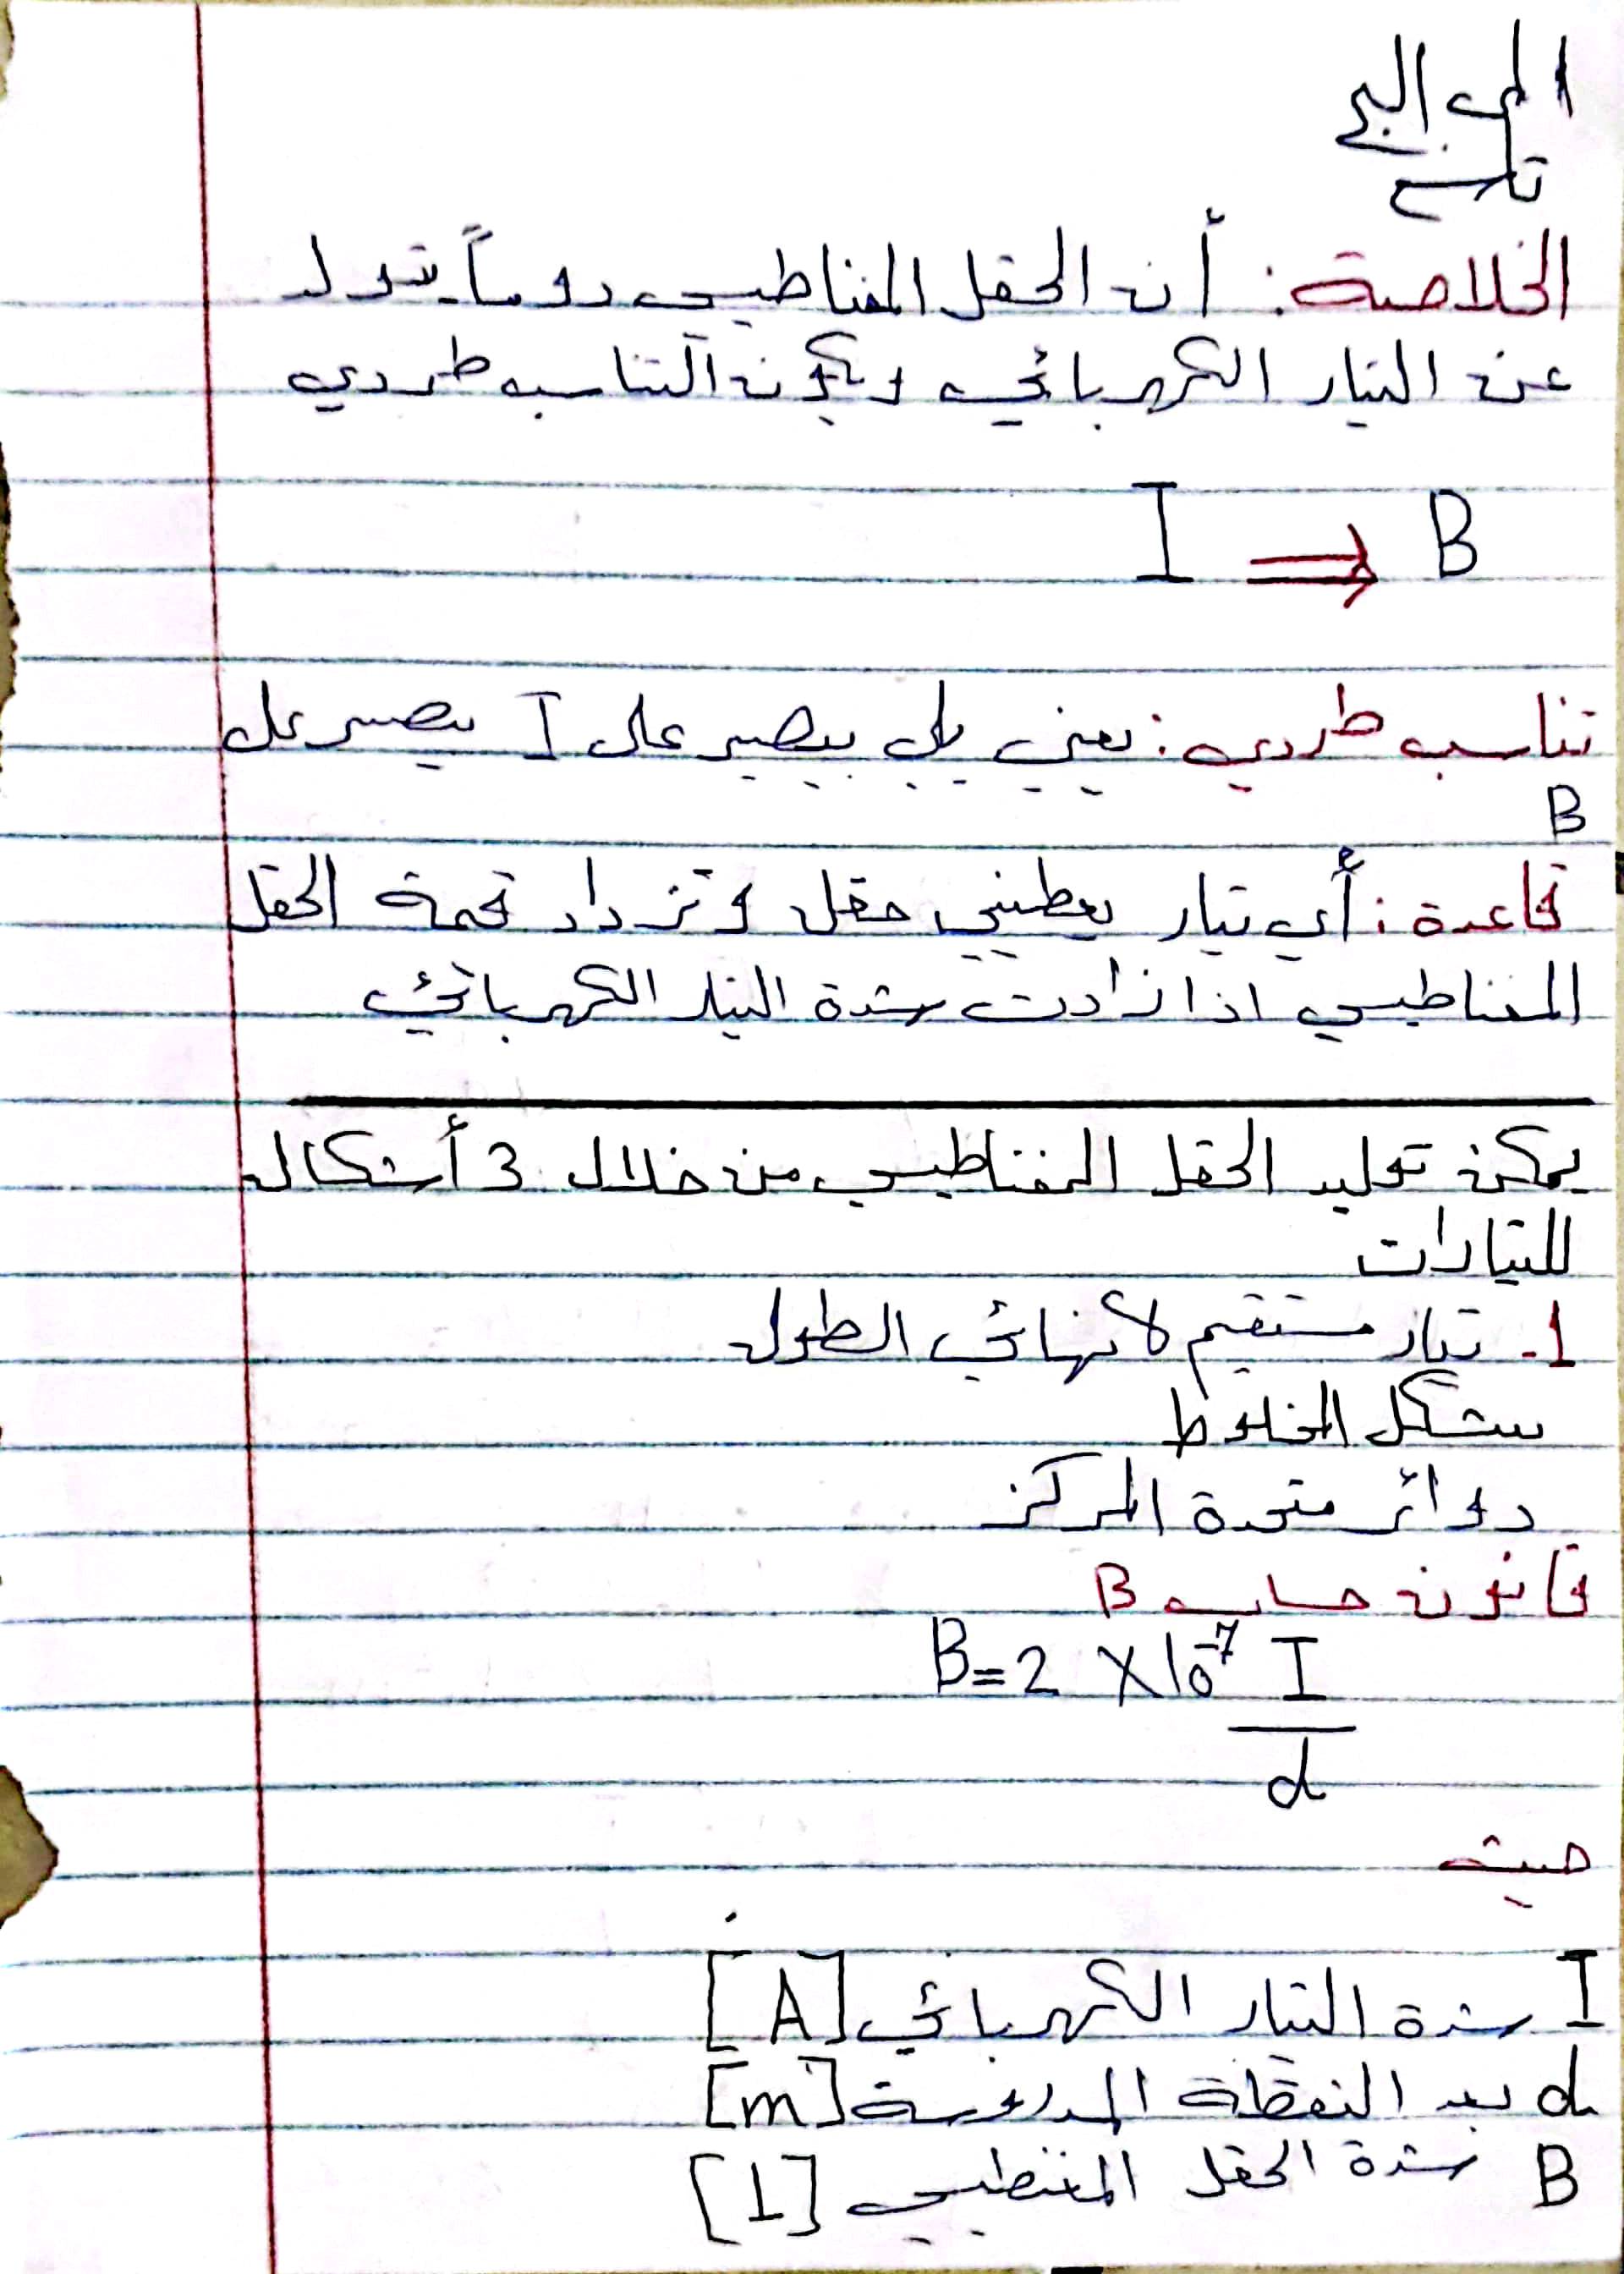 تاسع
الخلاصة: أن الحقل المغناطيسي دوماً يتولد
عن التيار الكهربائي ويكون التناسب طردي
I ⇒ B
تناسب طردي: يعني يلي بيصير على I بيصير على
B
قاعدة: أي تيار يعطيني حقل وتزداد قيمة الحقل
المغناطيسي اذا زادت شدة التيار الكهربائي
يمكن توليد الحقل المغناطيسي من خلال 3 أشكال
للتيارات
1. تيار مستقيم لا نهائي الطول
شكل الخطوط
دوائر متحدة المركز
قانون حساب B
B=2 X10⁻⁷ I
d
حيث
I شدة التيار الكهربائي [A]
d بعد النقطة المدروسة [m]
B شدة الحقل المغنطيسي [T]